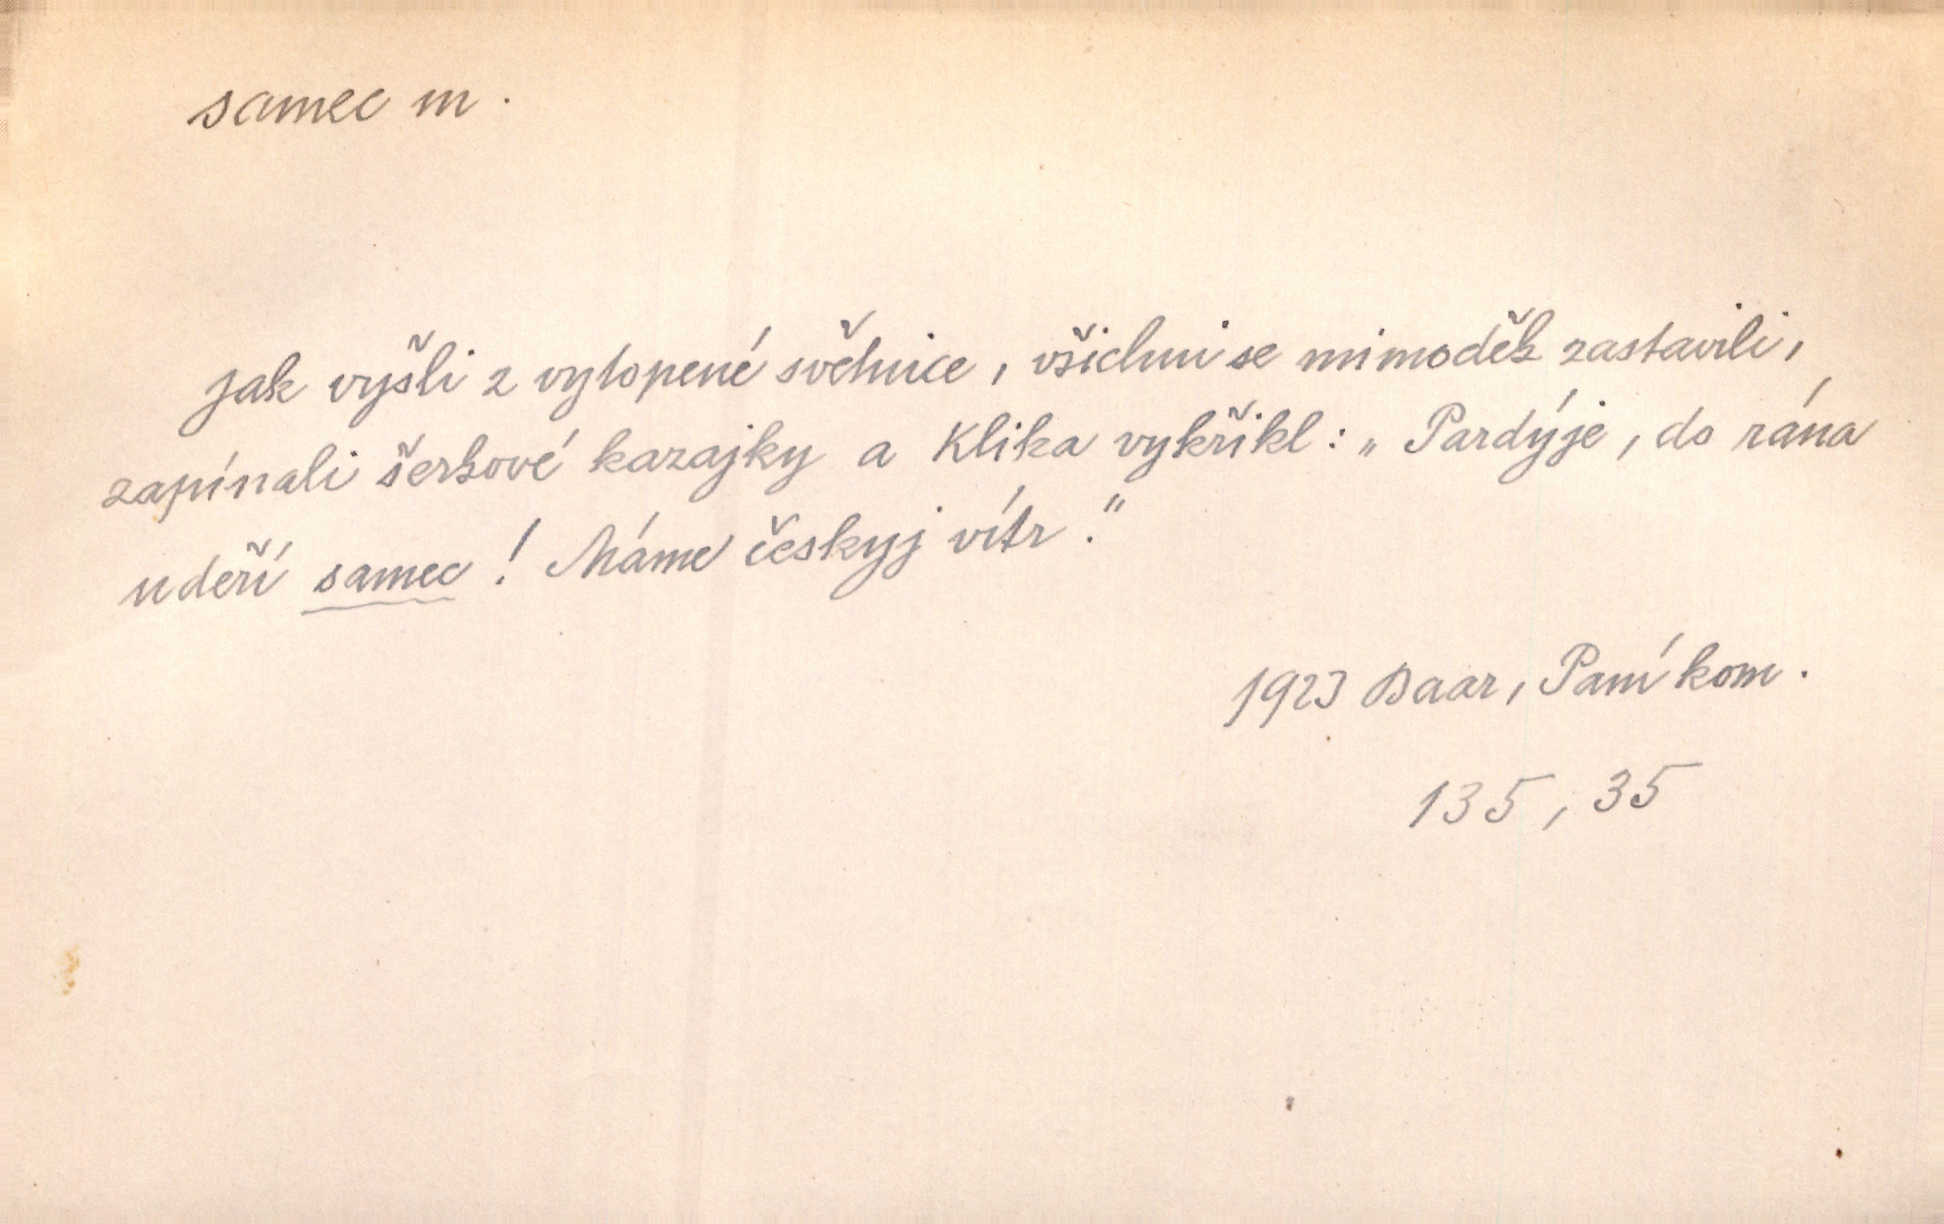 samec m.
Jak vyšli z vytopené světnice, všichni se mimoděk zastavili,
zapínali šerkové kazajky a Klika vykřikl: „Pardýje, do rána
udeří samec! Máme českyj vítr."
1923 Baar, Paní kom.
135, 35